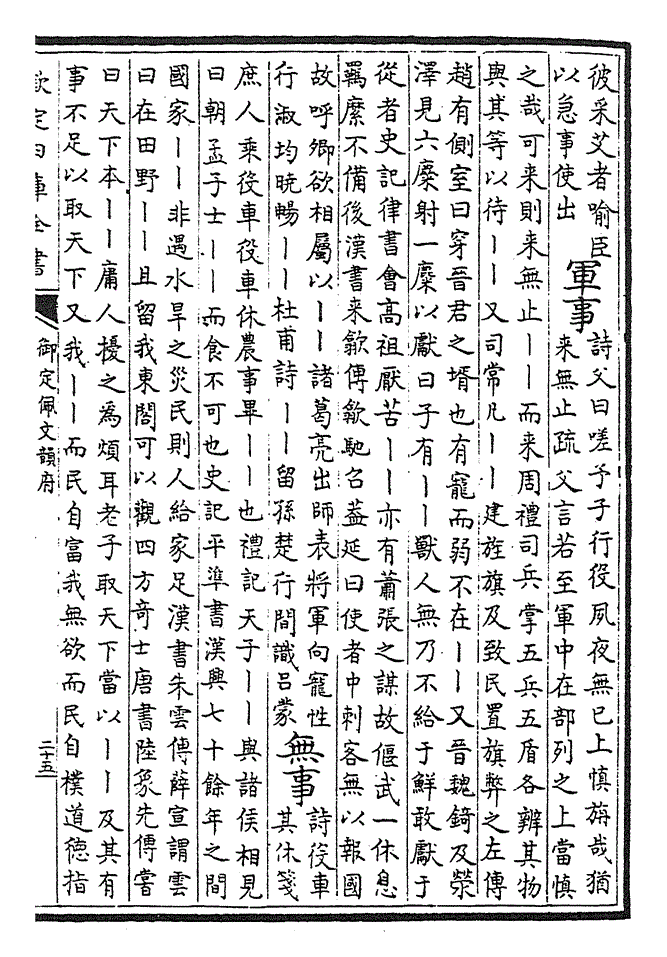 彼采艾者喻臣
以急事使出
軍事
詩父曰嗟予子行役夙夜無已上慎旃哉猶
来無止疏父言若至軍中在部列之上當慎
之哉可来則来無止丨丨而来周禮司兵掌五兵五盾各辨其物
與其等以待丨丨又司常凡丨丨建旌旗及致民置旗弊之左傳
趙有側室曰穿晉君之壻也有寵而弱不在丨丨又晉魏錡及滎
澤見六麋射一麋以獻曰子有丨丨獸人無乃不給于鮮敢獻于
從者史記律書會高祖厭苦丨丨亦有蕭張之謀故偃武一休息
羈縻不備後漢書来歙傳歙馳召蓋延曰使者中刺客無以報國
故呼卿欲相屬以丨丨諸葛亮出師表將軍向寵性
行淑均曉暢丨丨杜甫詩丨丨留孫楚行間識吕蒙
無事
詩役車
其休箋
庶人乘役車役車休農事畢丨丨也禮記天子丨丨與諸侯相見
曰朝孟子士丨丨而食不可也史記平準書漢興七十餘年之間
國家丨丨非遇水旱之災民則人給家足漢書朱雲傳薛宣謂雲
曰在田野丨丨且留我東閤可以觀四方竒士唐書陸象先傳嘗
曰天下本丨丨庸人擾之為煩耳老子取天下當以丨丨及其有
事不足以取天下又我丨丨而民自富我無欲而民自樸道德指
欽定四庫全書
御定佩文韻府
二十五